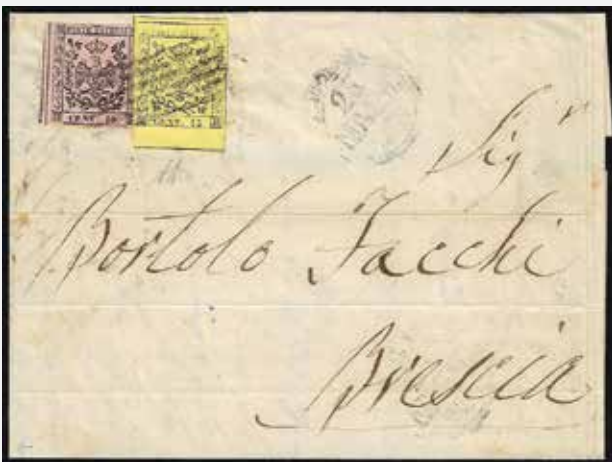 CENT. 10
CENT. 15
Sig.r
Bortolo Facchi
Brescia